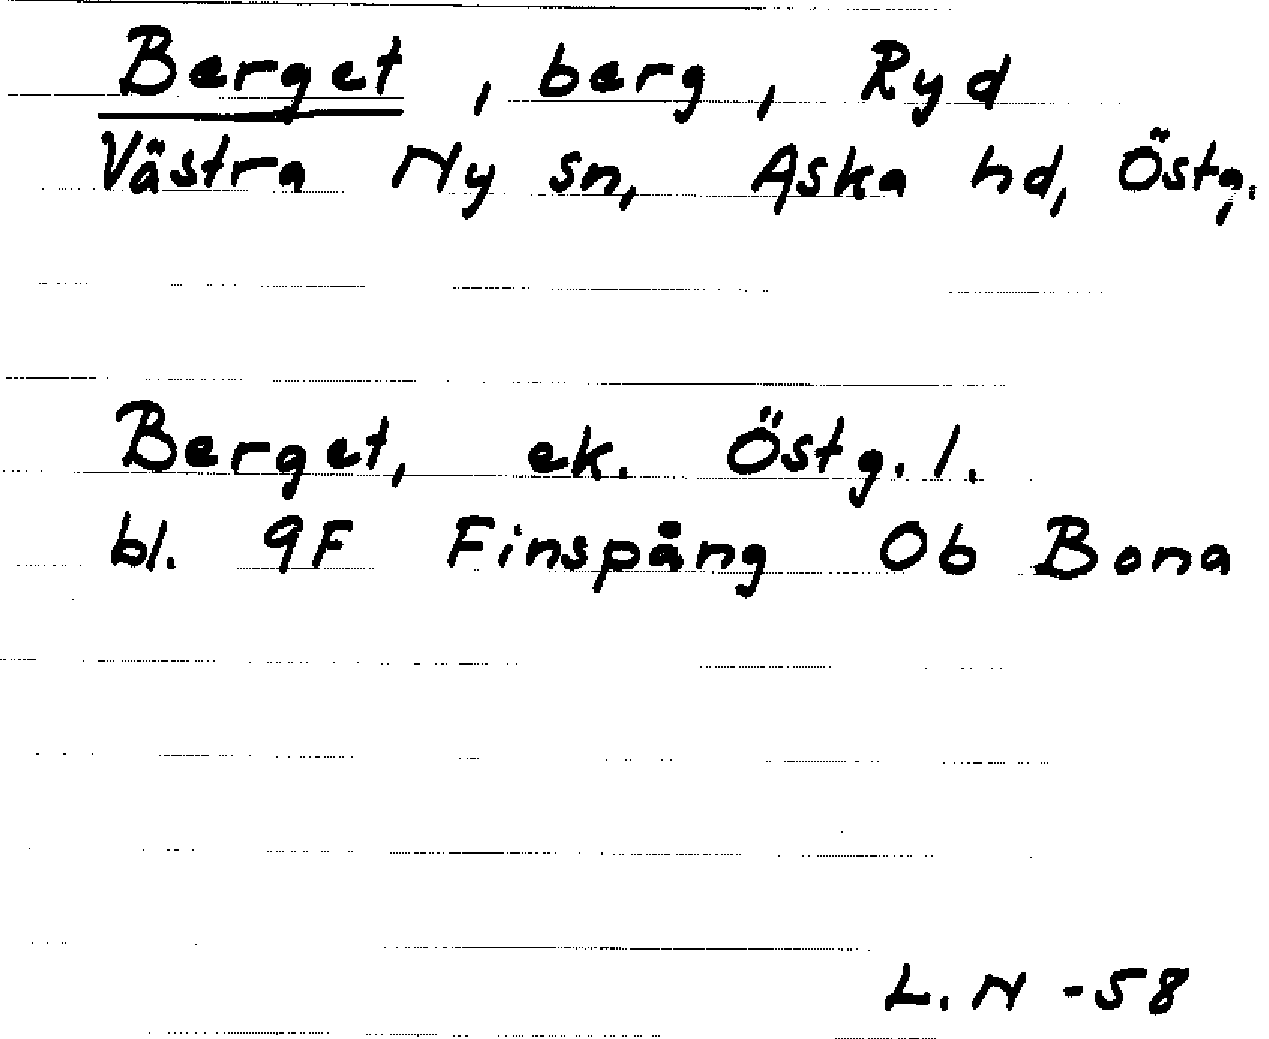 Berget, berg, Ryd
Västra Ny sn, Aska hd, Östg.
Berget, ek. Östg. l.
bl. 9F Finspång 0b Bona
L. N -58